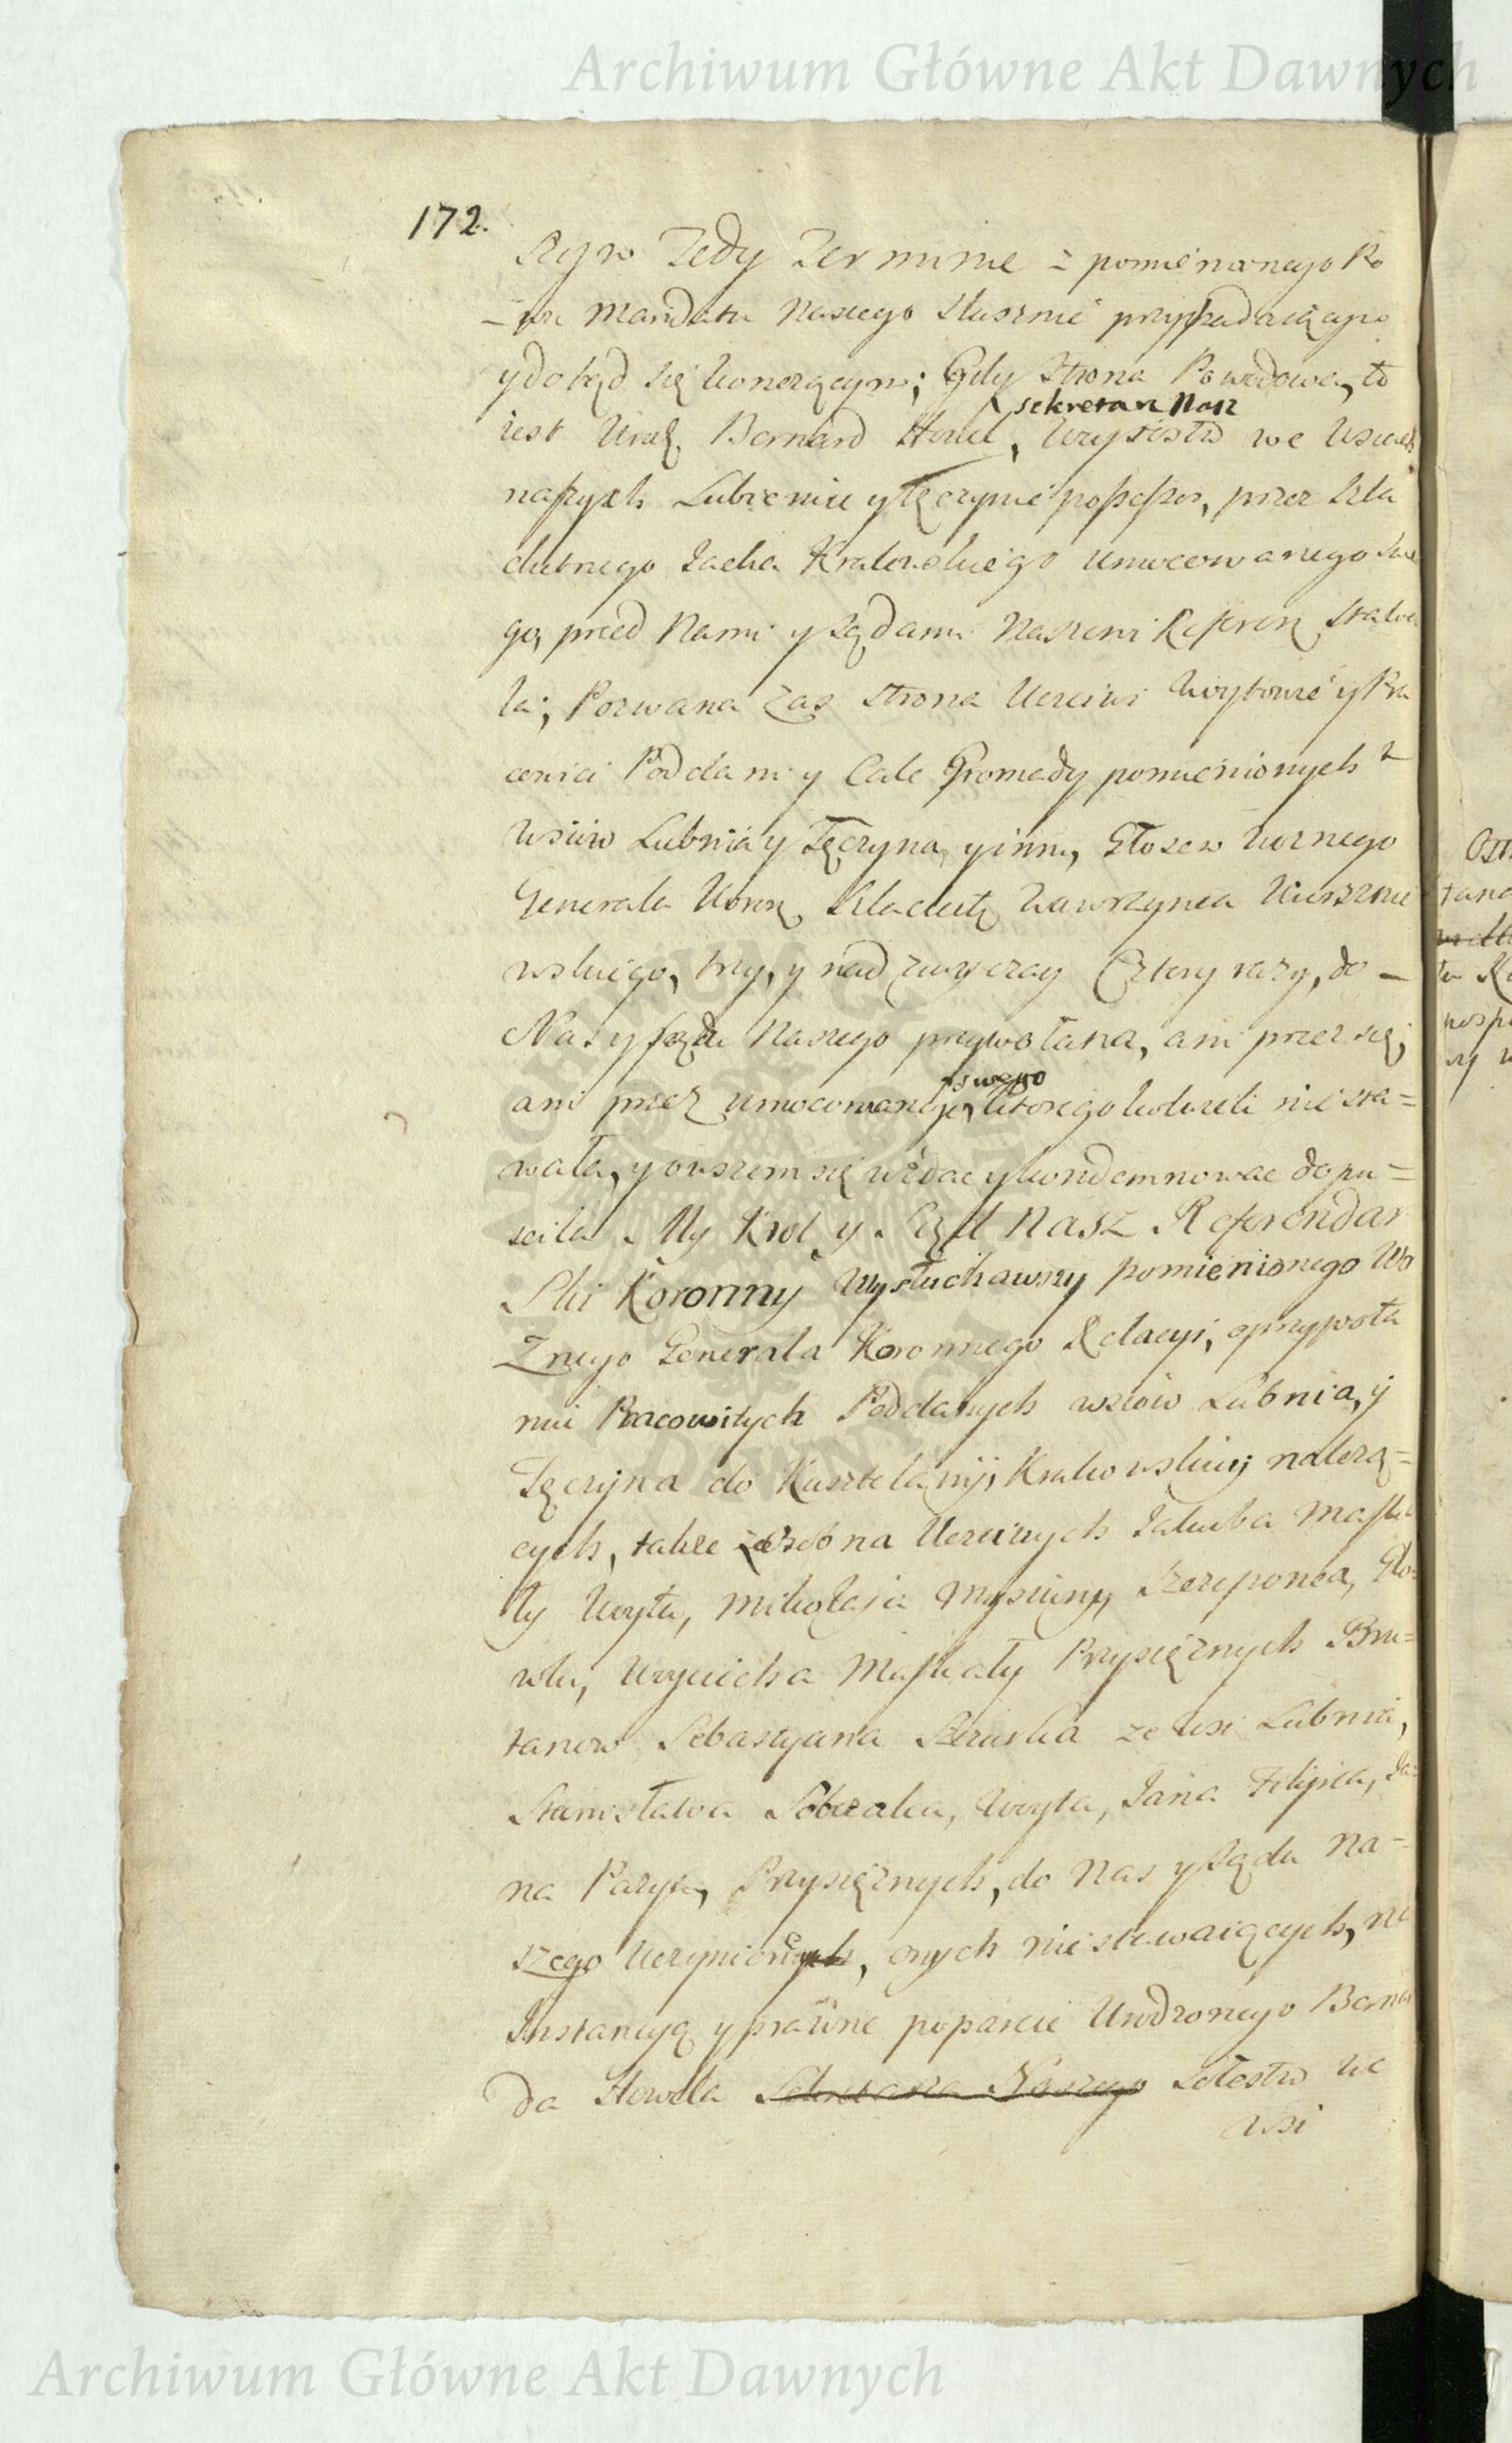 Archiwum Główne Akt Dawnych
172.
Tedy Terminie z pomienionego Po
Mandatu Naszego słusznie przypadaiącego
y dotąd się kończącym; Gdy Strona Powodowa, to
sekretarz Nasz
iest Urodz. Bernard Howel, we wsiach
naszych Lubieniu y Tęczynie possessor, przez Szla
chetnego Jacka Krakowskiego umocowanego swe
go, przed Nami y Sądami Naszemi Referen. stawa
ła; Pozwana zas strona Uczciwi Woytowie y Pra
cowici Poddani y Cale Gromady pomienionych
wsiów Lubnia y Tęczyna, y inni, Głosem Woznego
Generała Koron. Szlachetę Wawrzynca
wskiego, trzy, y nad zwyczay Cztery razy, do –
Nas y sądu Naszego przywołana, ani przez się,
swego
ani przez umocowanego, ktoregokolwiek nie sta=
wała, y owszem się wzdac y kondemnowac dopu=
sciła My Krol y Sąd Nasz Referendar
Ski Koronny Wysłuchawszy pomienionego Wo
Znego Generała Koronnego Relacyi, o przywoła
niu Pracowitych Poddanych wsiow Lubnia, y
Tęczyna do Kasztelanij Krakowskiey należą=
cych, także zosobna Uczciwych Jakuba Maska
ły Woyta, Mikołaja Szczeponca, Gło=
wki, Woyciecha Maskały Przysięznych
Sebastyana ze wsi Lubnia,
Stanisława Woyta, Jana Filipca, Ja=
na Przysięznych, do Nas y Sądu Na=
szego Uczynione, onych nie stawaiących, na
Instancyą y prawne poparcie Urodzonego Berna
da Howela Sekretarza Naszego we
wsi
Archiwum Główne Akt Dawnych